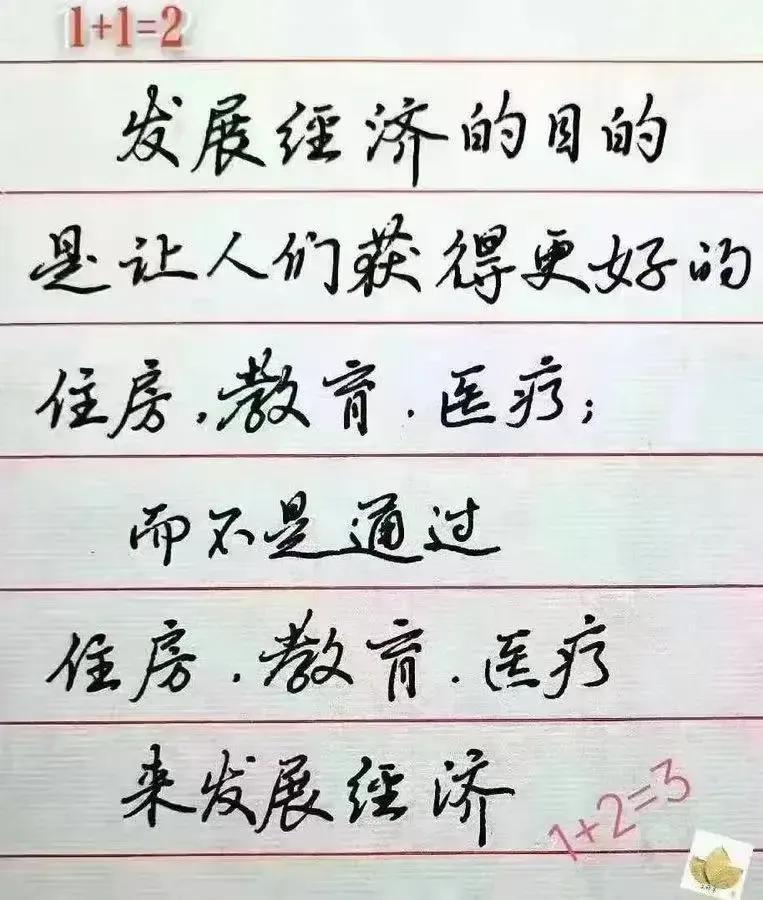 1+1=2
发展经济的目的
是让人们获得更好的
住房.教育.医疗;
而不是通过
住房.教育.医疗
来发展经济
1+2=3